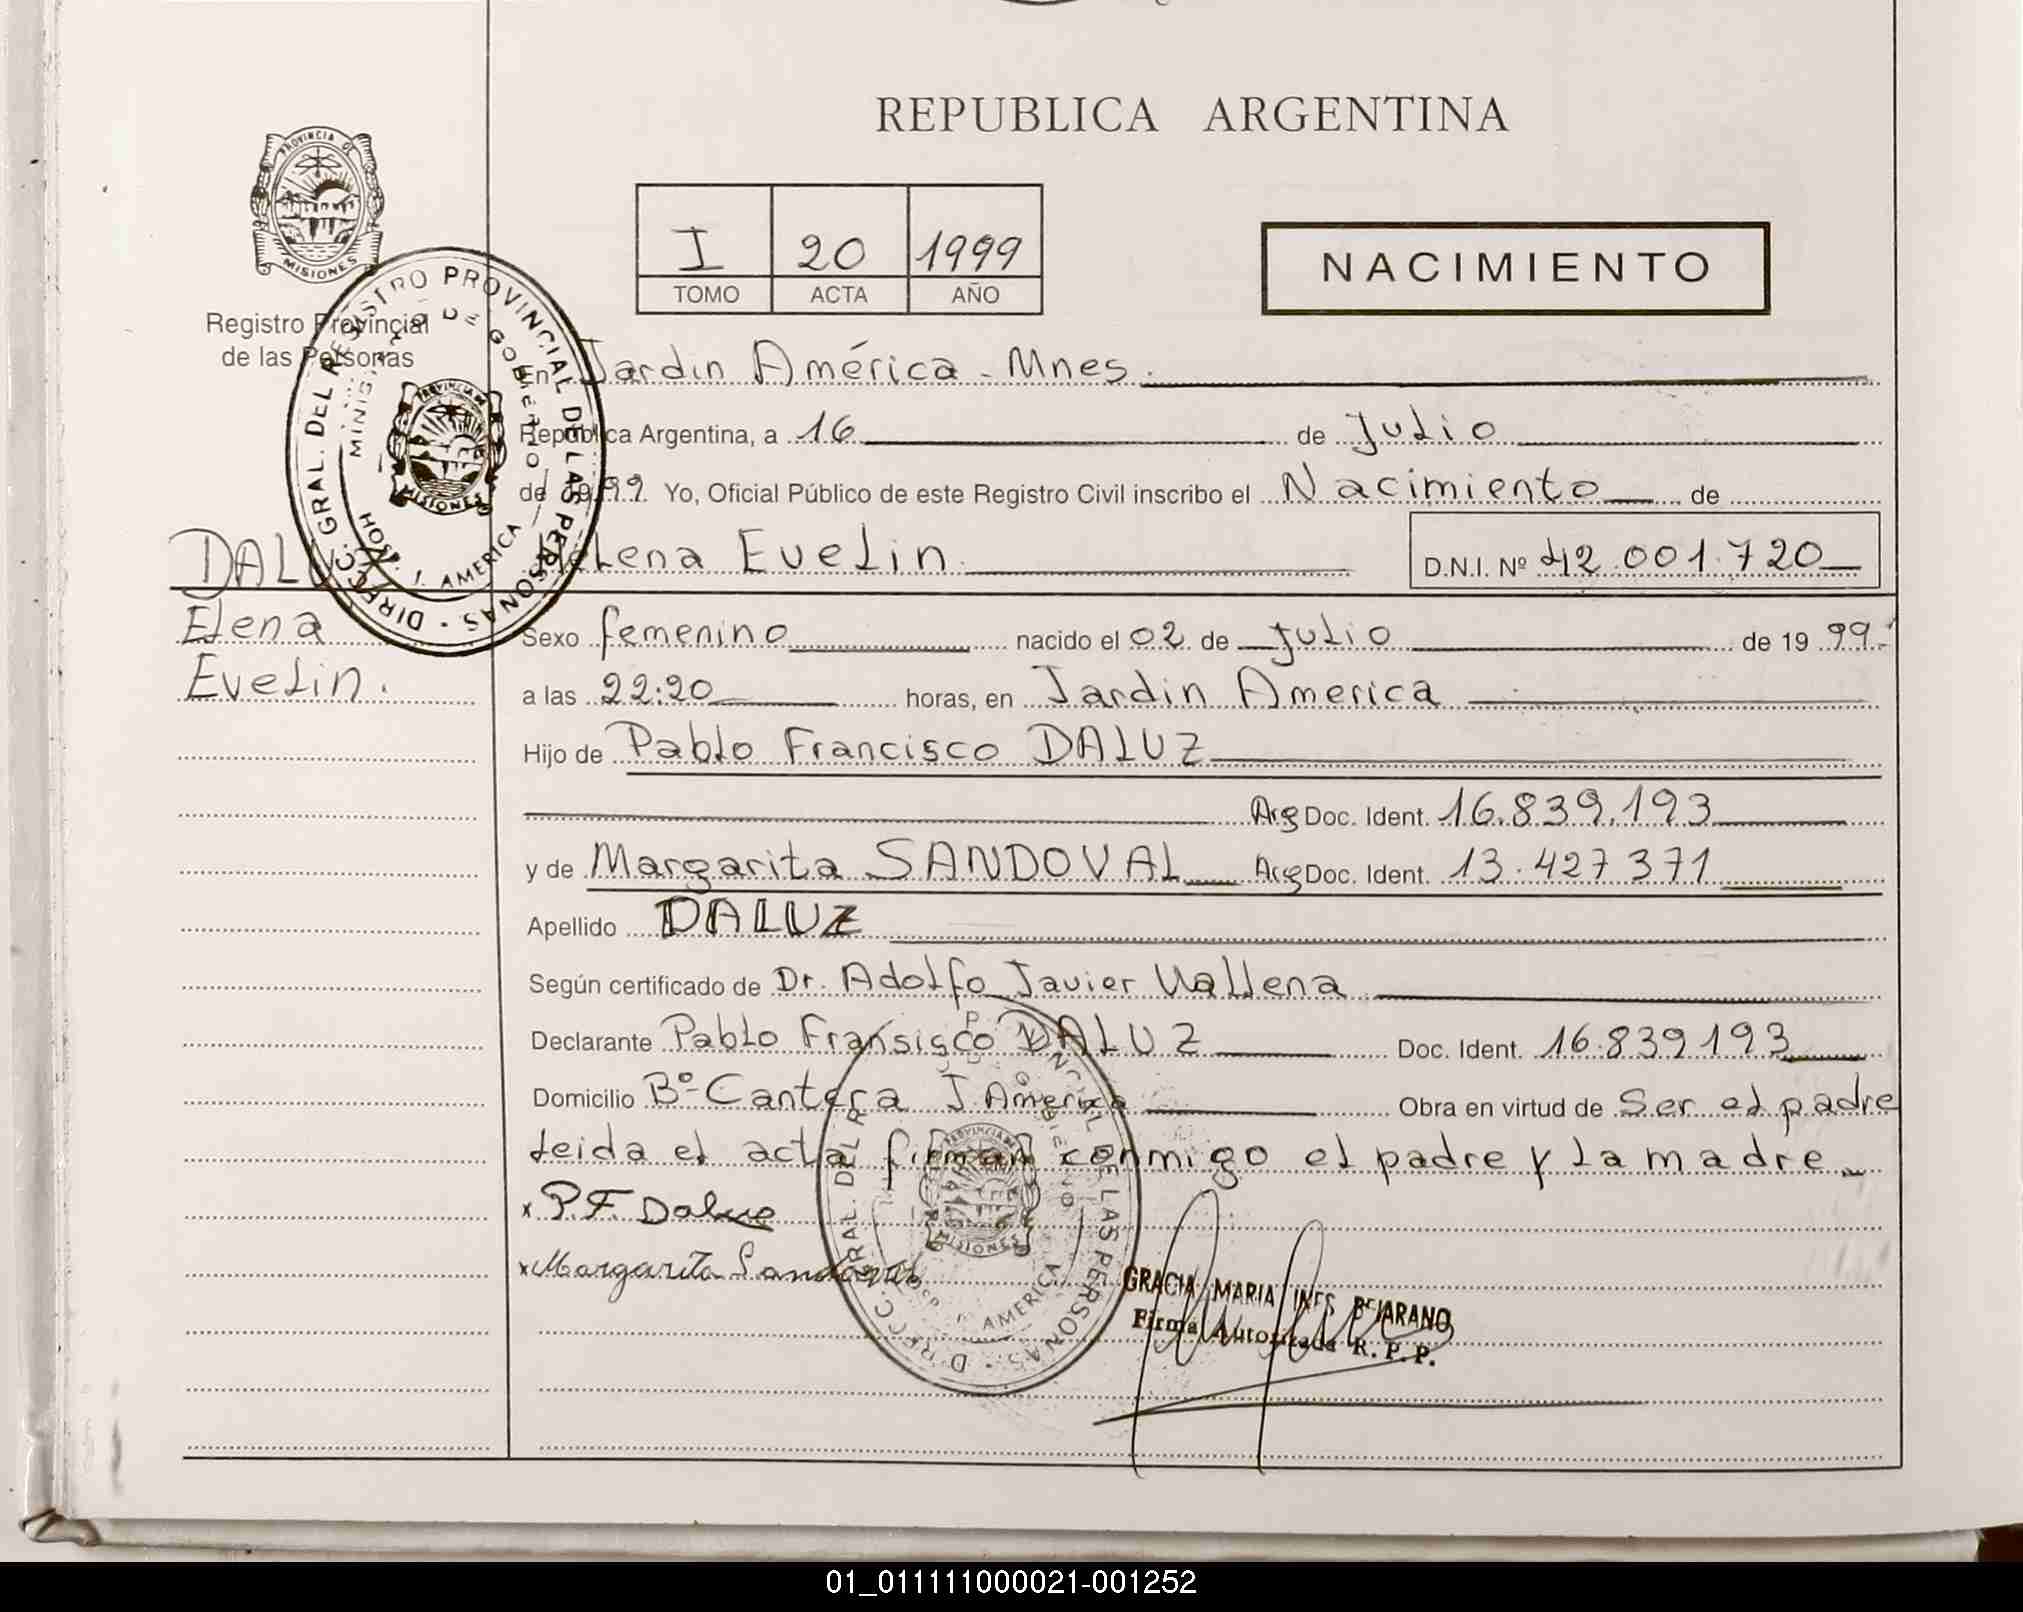 REPUBLICA ARGENTINA
PROVINCIA DE
MISIONES
Registro Provincial
de las Personas
I 20 1999
TOMO ACTA AÑO
NACIMIENTO
DIRECC. GRAL. DEL REGISTRO PROVINCIAL DE LAS PERSONAS.
DE GOBIERNO
PROVINCIA DE
MISIONES
HOSP. J. AMERICA
En Jardin América - Mnes.
Republica Argentina, a 16 de Julio
de 1999. Yo, Oficial Público de este Registro Civil inscribo el Nacimiento de
Evelin D.N.I. Nº 42.001.720
Elena
Evelin.
Sexo femenino nacido el 02 de Julio de 19 99.
a las 22:20 horas, en Jardin America
Hijo de Pablo Francisco DALUZ
Arg Doc. Ident. 16.839.193
y de Margarita SANDOVAL Arg Doc. Ident. 13.427 371
Apellido DALUZ
Según certificado de Dr. Adolfo Javier
Declarante Pablo Fransisco DALUZ Doc. Ident. 16.839193
Domicilio Bº Cantera J America Obra en virtud de Ser el padre
leida el acta firman conmigo el padre y la madre
x P.F. Daluz
x Margarita Sandoval
DIRECC. GRAL. DEL R PROVINCIAL DE LAS PERSONAS.
MISIONES
AMERICA
GRACIA MARIA INES BEJARANO
Firma Autorizada R. P. P.
01_011111000021-001252